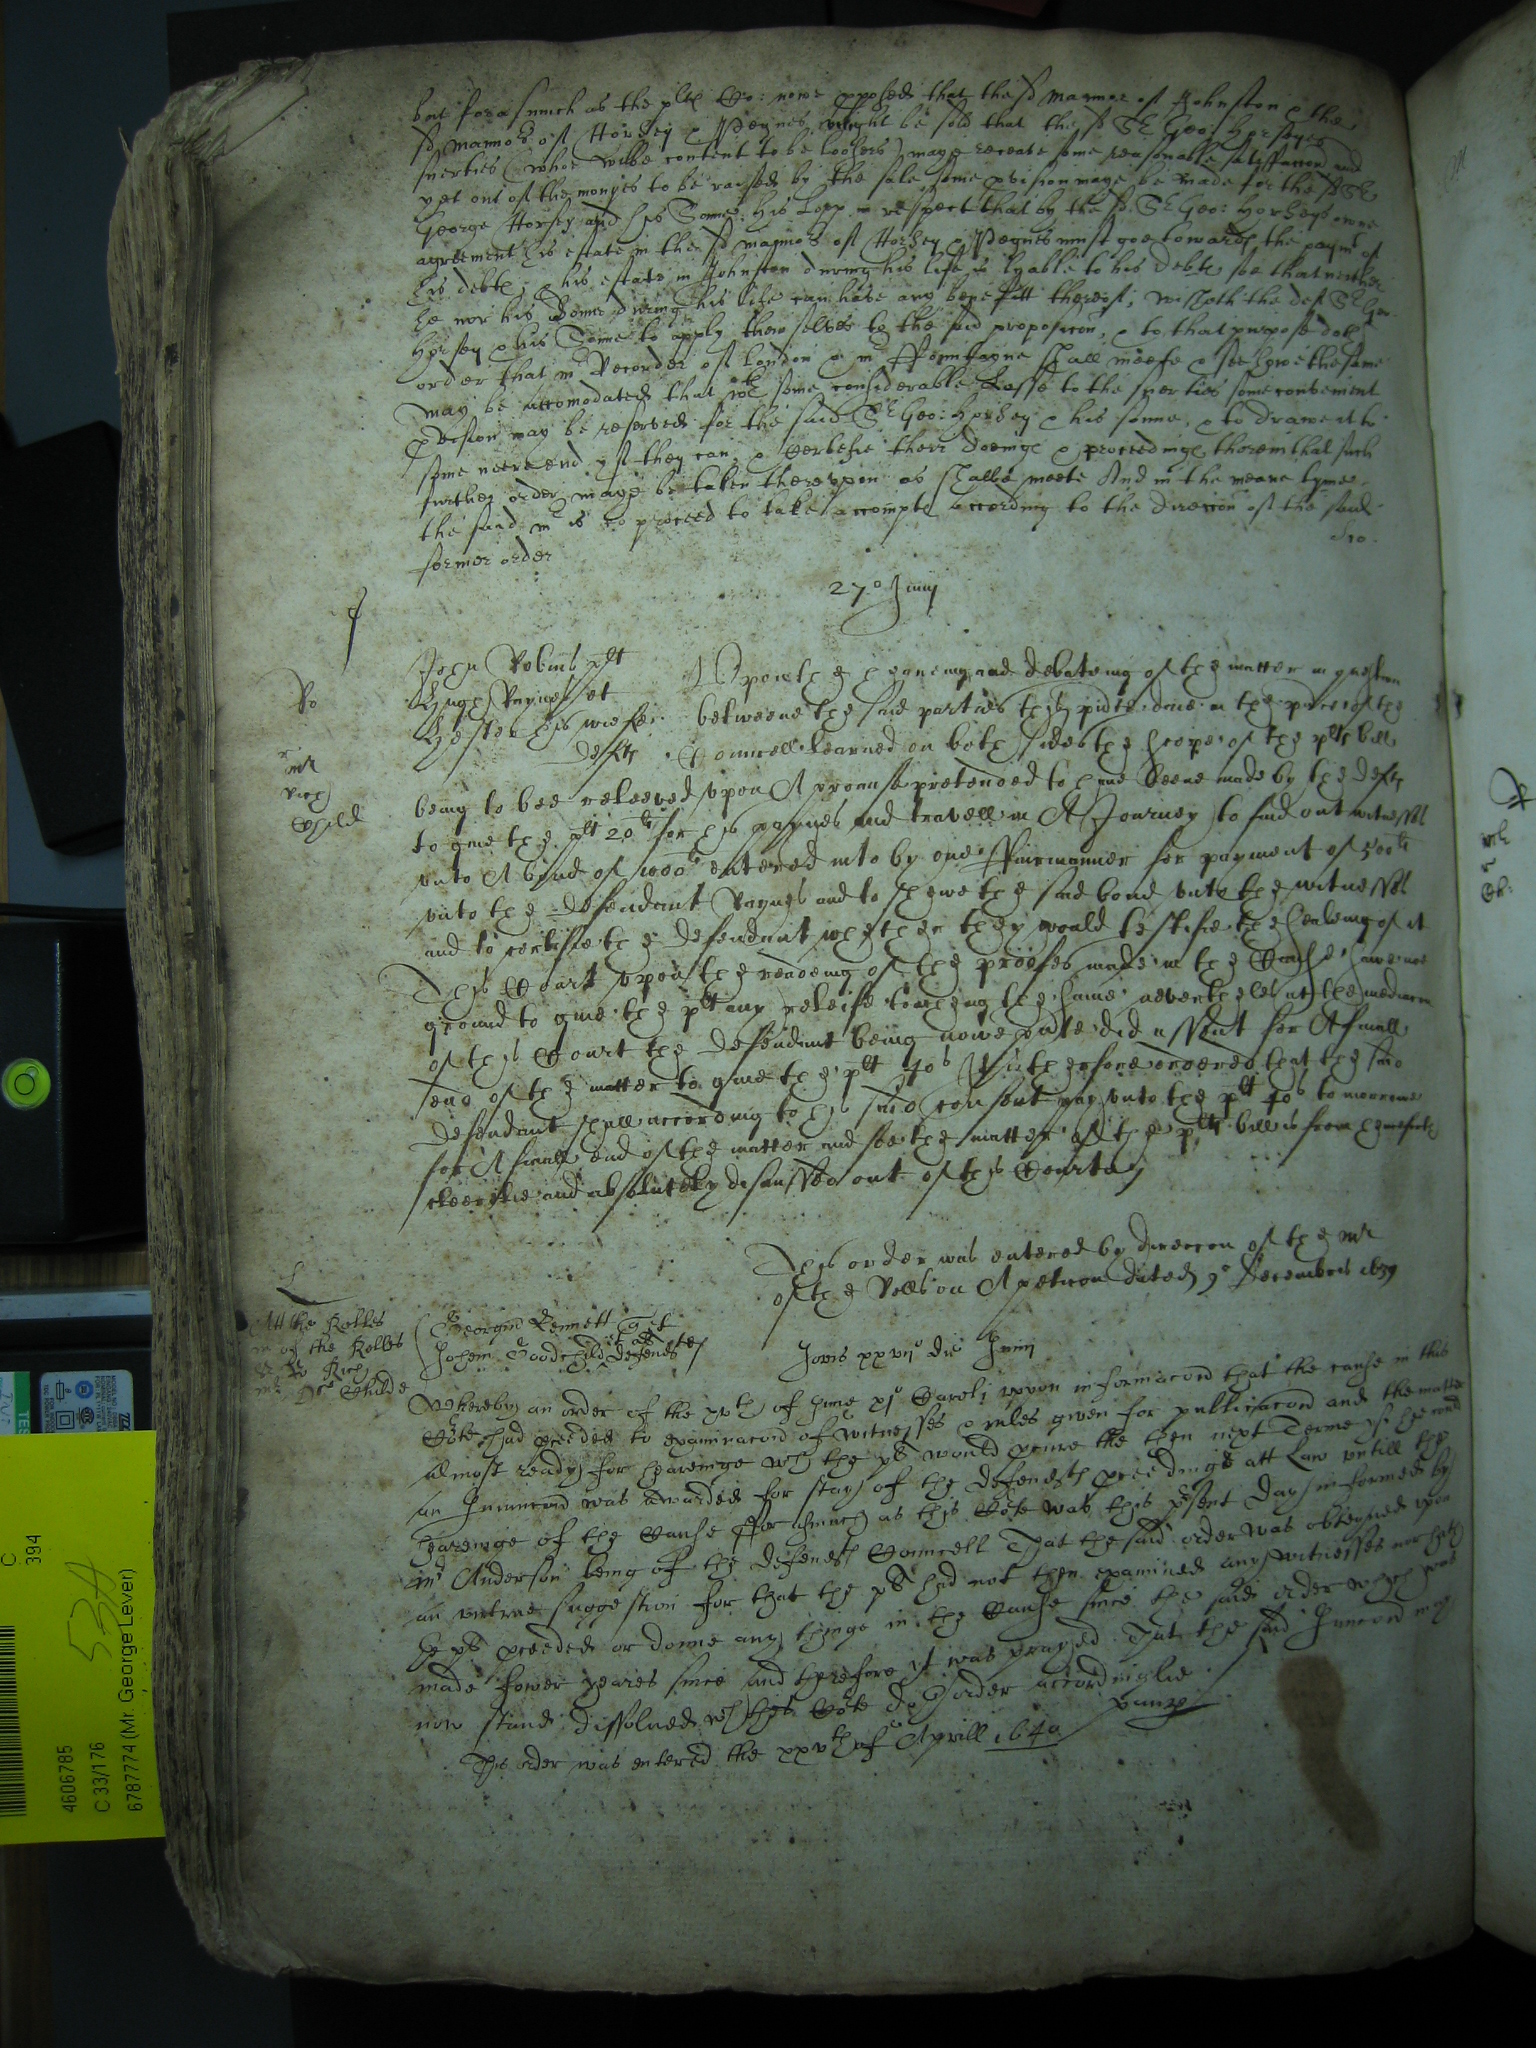 but forasmuch as the plts Co: nowe pposed that the sd Mannor of Johnston & the
sd Mannors of Horsey & Pegnes might be sold that the sd Sr Geo: Horseyes
suerties (whoe wilbe content to be loosers) maye receave some reasonable satisfaccon and
yet out of the monyes to be raysed by the sale some pvision maye be made for the sd Sr
George Horsey and his Sonne, his Lopp in respect that by the sd Sr Geo: Horseys owne
agreement his estate in the sd mannors of Horsey & Pegnes must goe towards the paymt of
his debts, & his estate in Johnston during his life is lyable to his debts soe that neither
he nor his Sonne during his life can have any benefitt thereof; wisheth the deft Sr Geo:
Horsey & his Sonne to apply themselves to the said proposicon, & to that purpose doth
order that mr Recorder of London & mr Fountayne shall meete & see howe the same
may be accomodated that wth some considerable Losse to the suerties some convenient
pvision may be reserved for the said Sr Geo: Horsey & his sonne, & to drawe it to
some neere end yf they can, & certefie their doeings & proceedings therein that such
further order maye be taken thereupon as shalbe meete And in the meane tyme
the said mr is to proceed to take accompts according to the direccon of the said
former order
27o Junij
John Robins plt
Hugh Raynes et
Hester his wiefe
defts
Upon the heareing and debateing of the matter in question
betweene the said parties this pnte daie in the pnce of the
Councell Learned on both sides the scope of the plts bill
being to bee releeved upon A promise pretended to have beene made by the defts
to give the plt 20li for his paynes and travell in A Journey to find out witnesses
unto A bond of 1000li entered into by one Fairmanner for payment of 500li
unto the defendant Raynes and to shewe the said bond unto the witnesses
and to certifie the defendant whether they would testifie the sealeing of it
This Court upon the readeing of the proofes made in the Cause sawe noe
ground to give the plt any releife touching the same nevertheles at the mediacon
of this Court the defendant being nowe pnte did assent for A finall
end of the matter to give the plt 40s It is therefore ordered that the said
defendant shall according to his said consent pay unto the plt 40s to morrowe
for A finall end of the matter and soe the matter of the plts bill is from henceforth
cleerelie and absolutely dismissed out of this Court
This order was entered by direccon of the Mr
of the Rolls on A peticon dated 9o Decembris 1639
Ro
mr
Rich
Child
Att the Rolles
mr of the Rolles
Sr Ro Rich
mr Dcr Childe
Georgiu Bennett Quer
Johem Goodchild et als defendtes
Jovis xxvijo die Junij
Whereby an order of the xvth of June xjo Caroli uppon informacon that the cause in this
Cote had pceeded to examinacon of witnesses & rules given for publicacon and the matter
almost ready for heareinge wch the plt would pcure the then next Terme yf hee could
an Iniunccon was awarded for stay of the defendtes pceedings att Law untill the
heareinge of the Cause Forasmuch as this Cote was this psent day informed by
mr Anderson being of the defendtes Councell That the said order was obteyned upon
an untrue suggestion for that the plt had not then examined any witnesses nor hath
the plt pceeded or donne any thinge in the Cause since the said order which was
made fower yeares since and therefore it was prayed That the said Iniunccon may
now stand dissolved wch this Cote doth order accordinglie
This order was entered the xxvth of Aprill 1640
C
394
53A
4606785
C 33/176
6787774 (Mr. George Lever)